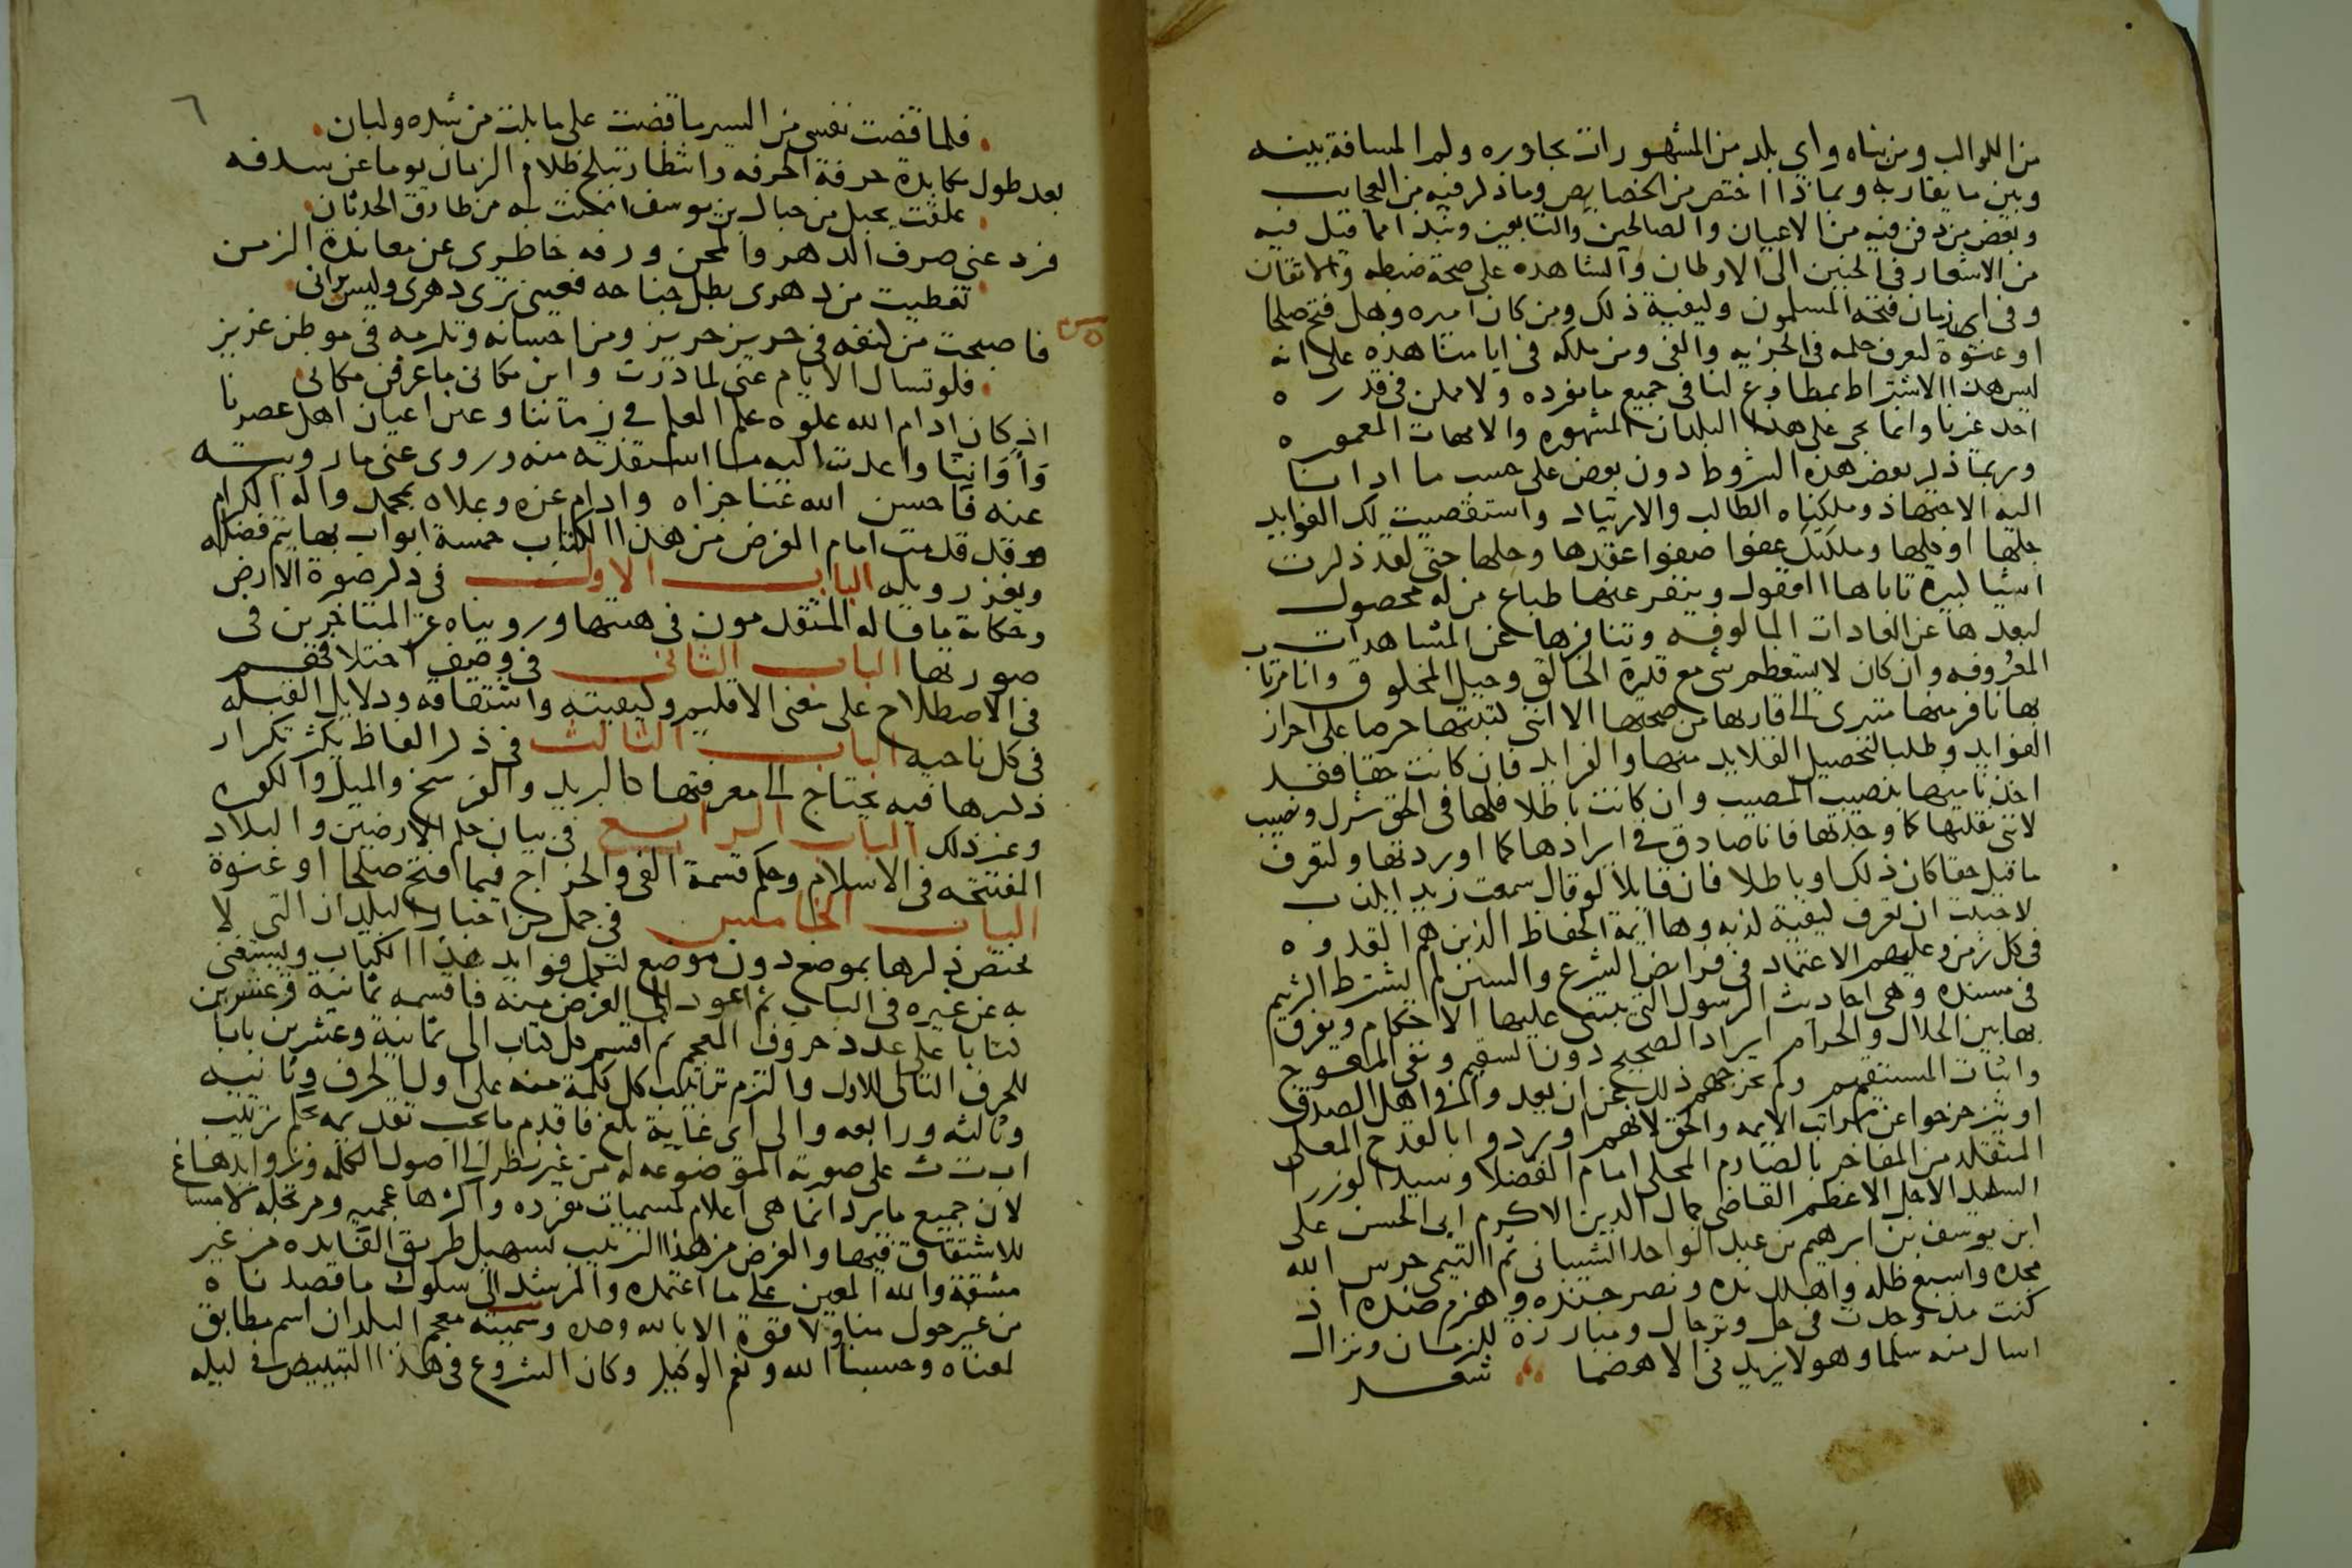 من الكواكب ومن بناه واي بلد من المشهورات تجاوره وكم المسافة بينه
وبين ما يقاربه وبماذا اختص من الخصايص وما ذكر فيه من العجايب
وبعض من دفن فيه من الاعيان والصالحين والتابعين ونبذا مما قيل فيه
من الاشعار في الحنين الى الاوطان والشاهده على صحة ضبطه والاتقان
وفي اي زمان فتحه المسلمون وكيفية ذلك ومن كان اميره وهل فتح صلحا
او عنوة لتعرف حكمه في الجزيه والفي ومن ملكه في ايامنا هذه على انه
ليس هذا الاشتراط بمطاوع لنا في جميع ما نورده ولا ممكن في قدره
احد غيرنا وانما يجي على هذا البلدان المشهوره والامهات المعموره
وربما ذكر بعض هذه الشروط دون بعض على حسب ما ادانا
اليه الاجتهاد وملكناه الطالب والارتياد واستقصيت لك الفوايد
جلها او كلها وملكتك عفوا صفوا عقدها وحلها حتى لقد ذكرت
اشيا كبيرة تاباها العقول وينفر عنها طباع من له محصول
لبعدها عن العادات المالوفه وتنافرها عن المشاهدات
المعروفه وان كان لا يستعظم شي مع قدرة الخالق وحيل المخلوق وانا مرتاب
بها نافر منها متبري الى قاريها من صحتها الا انني كتبتها حرصا على احراز
الفوايد وطلبا لتحصيل القلايد منها والفرايد فان كانت حقا فقد
اخذنا منها بنصيب المصيب وان كانت باطلا فلها في الحق شرك ونصيب
لانني نقلتها كما وجدتها فانا صادق في ايرادها كما اوردتها ولتعرف
ما قيل حقا كان ذلك او باطلا فان قايلا لو قال سمعت زيدا يكذب
لاحببت ان تعرف كيفية كذبه وها ايمة الحفاظ الذين هم القدوه
في كل زمن وعليهم الاعتماد في فرايض الشرع والسنن لم يشترط اكثرهم
في مسنده وهي احاديث الرسول التي تبتني عليها الاحكام ويفرق
بها بين الحلال والحرام ايراد الصحيح دون السقيم ونفي المعوج
واثبات المستقيم ولم يخرجهم ذلك عن ان يعدوا في اهل الصدق
او يتزحزحوا عن مراتب الايمه والحق لانهم اوردوا بالقدح المعلى
المتقلد من المفاخر بالصارم المحلى امام الفضلا وسيد الوزرا
السيد الاجل الاعظم القاضي جمال الدين الاكرم ابى الحسن على
ابن يوسف بن ابرهيم بن عبد الواحد الشيباني ثم التيمي حرس الله
مجده واسبغ ظله واهلك نده ونصر جنده وهزم ضده اذ
كنت مذ وجدت في حل وترحال ومبارزة للزمان ونزال
اسال منه سلما وهو لا يزيدني الا هضما شعر
٦
فلما قضت نفسي من السير ما قضت على ما بلت من شده وليان
بعد طول مكابدة حرفة الحرفه وانتظار تبلج ظلام الزمان يوما عن سدفه
علقت بحبل من حبال بن يوسف امنت به من طارق الحدثان
فرد عني صرف الدهر والمحن ورفه خاطري عن معاندة الزمن
تغطيت من دهري بظل جناحه فعيني ترى دهري وليس يراني
فاصبحت من كنفه في حريز حريز ومن احسانه وتكرمه في موطن عزيز
فلو تسال الايام عني لما درت واين مكاني ما عرفن مكاني
اذ كان ادام الله علوه علم العلم في زماننا وعين اعيان اهل عصرنا
واواننا واعدت اليه ما استفدته منه وروى عني ما رويته
عنه فاحسن الله عنا جزاه وادام عزه وعلاه بمحمد واله الكرام
وقد قدمت امام الغرض من هذا الكتاب خمسة ابواب بها يتم فضله
ويغزر وبله الباب الاول في ذكر صورة الارض
وحكاية ما قاله المتقدمون في هيتها وروياه عن المتاخرين في
صورتها الباب الثاني في وصف اختلافهم
في الاصطلاح على معنى الاقليم وكيفيته واشتقاقه ودلايل القبله
في كل ناحيه الباب الثالث في ذكر الفاظ يكثر تكرار
ذكرها فيه يحتاج الى معرفتها كالبريد والفرسخ والميل والكوره
وغير ذلك الباب الرابع في بيان حكم الارضين والبلاد
المفتتحه في الاسلام وحكم قسمة الفي والخراج فيما افتتح صلحا او عنوة
الباب الخامس في جمل من اخبار البلدان التي لا
يختص ذكرها بموضع دون موضع لتكمل فوايد هذا الكتاب ويستغنى
به عن غيره في الباب ثم اعود الى الغرض منه فاقسمه ثمانية وعشرين
كتابا على عدد حروف المعجم ثم اقسم كل كتاب الى ثمانية وعشرين بابا
للحرف التالى للاول والتزم ترتيب كل كلمة منه على اول الحرف وثانيه
وثالثه ورابعه والى اي غاية بلغ فاقدم ما يجب تقديمه بحكم ترتيب
ا ب ت ث على صورته الموضوعه له من غير نظر الى اصول الكلمه وزوايدها
لان جميع ما يرد انما هي اعلام لمسميات مفرده واكثرها عجميه ومرتجله لا مساغ
للاشتقاق فيها والغرض من هذا الترتيب تسهيل طريق الفايده من غير
مشقة والله المعين على ما اعتمده والمرشد الى سلوك ما قصدناه
من غير حول منا ولا قوة الا بالله وحده وسميته معجم البلدان اسم مطابق
لمعناه وحسبنا الله ونعم الوكيل وكان الشروع في هذا التبييض في ليله